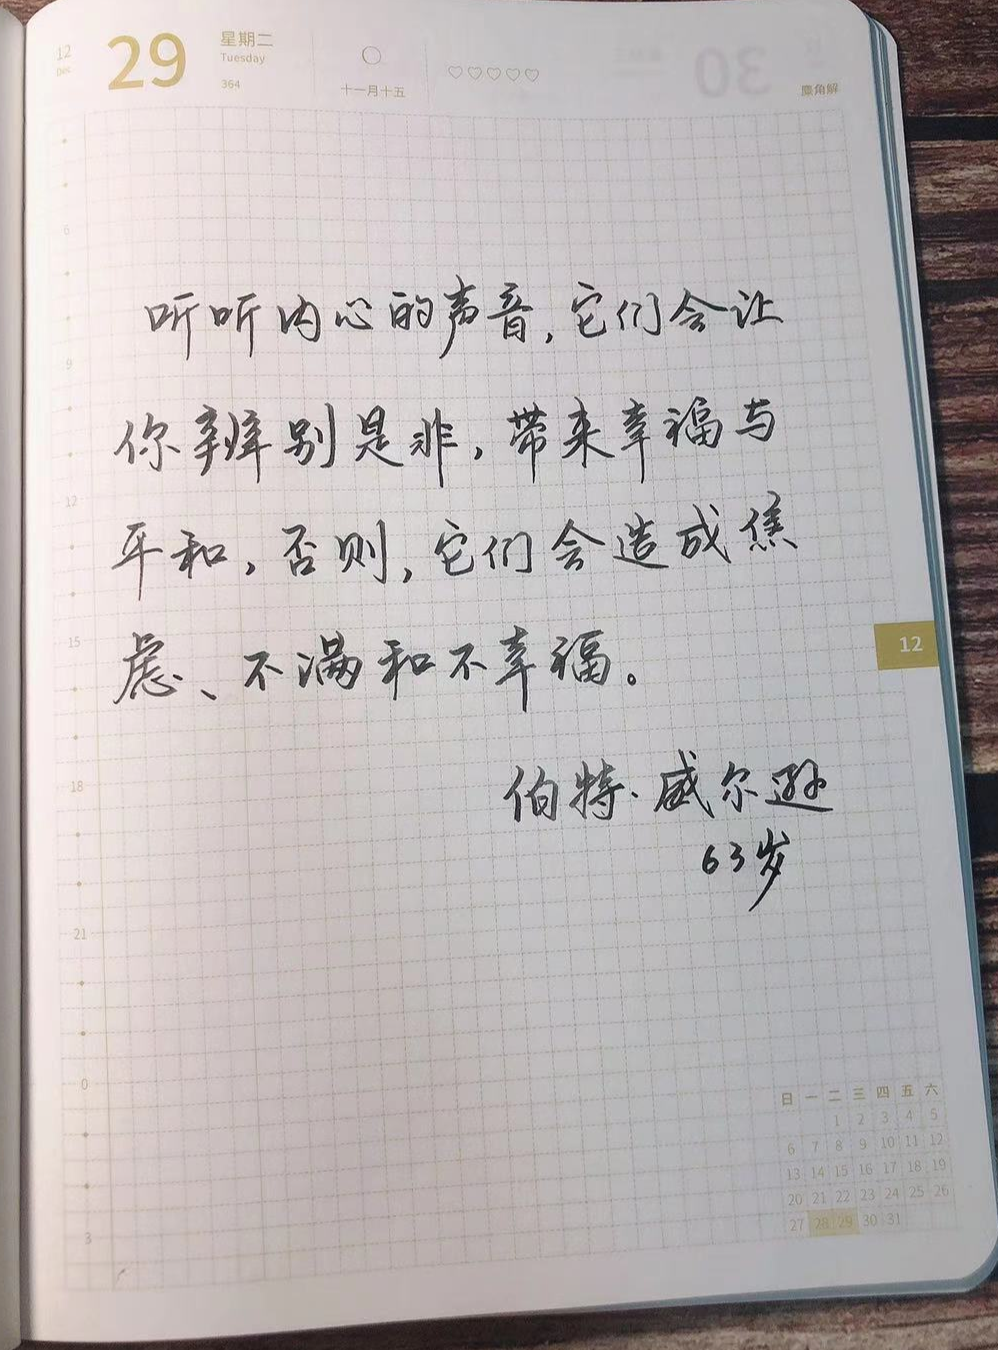 12
Dec
29
星期二
Tuesday
364
十一月十五
30
麋角解
6
9
12
15
18
21
0
3
听听内心的声音,它们会让
你辨别是非,带来幸福与
平和,否则,它们会造成焦
虑、不满和不幸福。
伯特·威尔逊
63岁
12
日 一 二 三 四 五 六
1 2 3 4 5
6 7 8 9 10 11 12
13 14 15 16 17 18 19
20 21 22 23 24 25 26
27 28 29 30 31